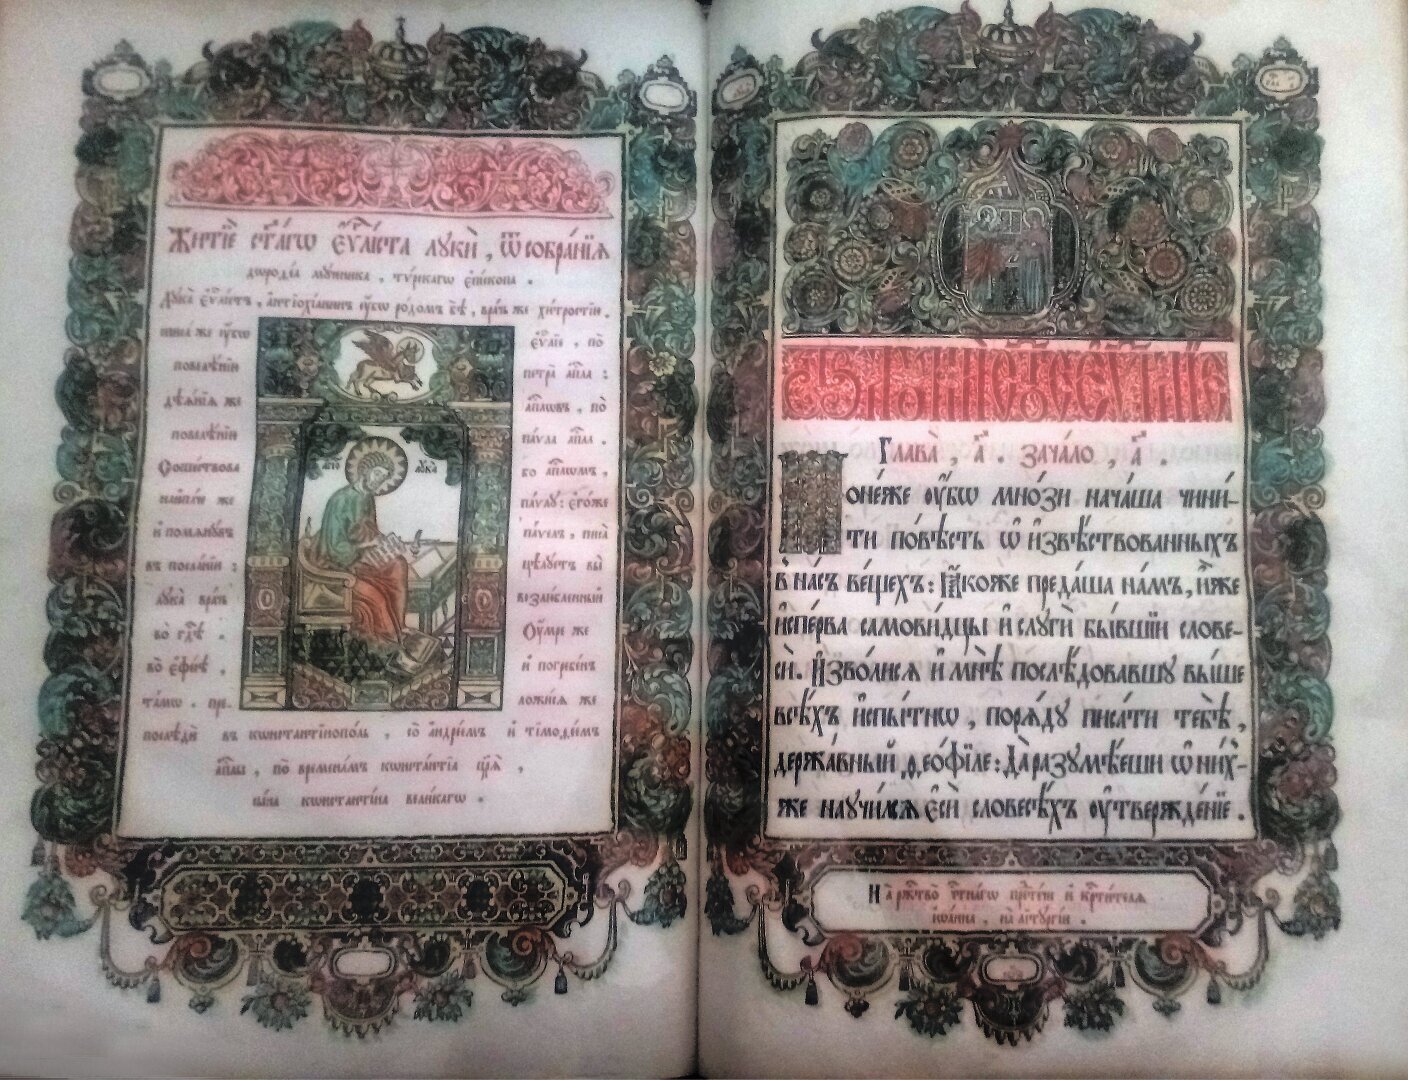 Житїе ст҃агѡ єѵ҃листа лꙋкѝ, ѿ собра́нїѧ
дѡроѳе́а мꙋченика, тѵ́рскагѡ є҆пі́скопа.
Лꙋка̀ є҆ѵ҃лі́стъ, а҆нтїохїанинъ ᲂу҆́бѡ ро́домъ бѣ̀, вра́чь же хи́тростїю.
писа́ же ᲂу҆́бѡ є҆ѵ҃лїе, по
повелѣ́нїю петра̀ а҆п҃ла:
дѣѧ̑нїѧ же а҆п҃лѡвъ, по
повелѣ́нїю па́ѵла а҆п҃ла.
Сошє́ствова бо а҆п҃лѡмъ,
наипа́че же па́ѵлꙋ: є҆го́же
и҆ помѧнꙋ́въ па́ѵелъ, писа̀
въ посла́нїи: цѣлꙋ́етъ вы̀
лꙋка̀ вра́чь возлю́бленный
во гдⷭ҇ѣ. Оу҆́мре же
во є҆фе́сѣ, и҆ погребе́нъ
та́мѡ. пре- ложи́сѧ же
послѣдѝ въ кѡнстантїно́поль, со а҆ндре́емъ и҆ тїмоѳе́емъ
а҆п҃лы, по времена́мъ кѡнста́нтїа цр҃ѧ̀,
сы́на кѡнстанті́на вели́кагѡ.
апⷭ҇о лꙋка̀
Глава̀, а҃. зача́ло, а҃.
Поне́же ᲂу҆́бѡ мно́зи нача́ша чини́-
ти по́вѣсть ѡ҆ и҆звѣ́ствованныхъ
въ на́съ ве́щехъ: ꙗ҆́коже преда́ша на́мъ, и҆̀же
и҆спе́рва самови́дцы и҆ слꙋги̑ бы́вшїи словесѐ-
сѝ. И҆зво́лисѧ и҆ мнѣ̀ послѣ́довавшꙋ вы́ше
всѣ̑хъ и҆спы́тнѡ, порѧ́дꙋ писа́ти тебѣ̀,
держа́вный ѳео́фїле: Да разꙋмѣ́еши ѡ҆ ни́х-
же наꙋчи́лсѧ є҆сѝ словесѣ́хъ ᲂу҆твержде́нїе.
На ржⷭ҇тво̀ чⷭ҇тна́гѡ прⷣте́чи и҆ крⷭ҇ти́телѧ
і҆ѡа́нна, на лїтꙋргі́и.